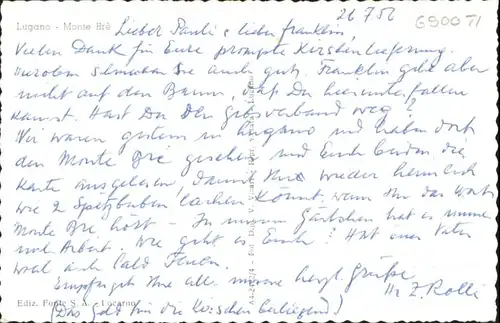 Lugano - Monte Brè
26 7 52
G 900 TI
Lieber Pauli & lieber Franklin,
Vielen Dank für Eure prompte Kirschenlieferung.
schmecken sie auch gut. Franklin geht aber
nicht auf den Baum, hat Du herunterfallen
kannst. Hast Du den Gipsverband weg?
Wir waren gestern in Lugano und haben dort
den Monte Bre gesehen und Euch beiden die
Karte ausgelesen, damit Ihr wieder herrlich
wie 2 Spitzbuben lachen könnt, wenn Ihr das Wort
Monte Bre hört - In unserm Gärtchen hat es immer
viel Arbeit. Wie geht es Euch? Hat euer Vater
wohl auch bald Ferien.
Empfangt Ihr alle unsere herzl. Grüße
Ediz. Fonte S. A. - Locarno
(Das Geld für die Kirschen beiliegend)